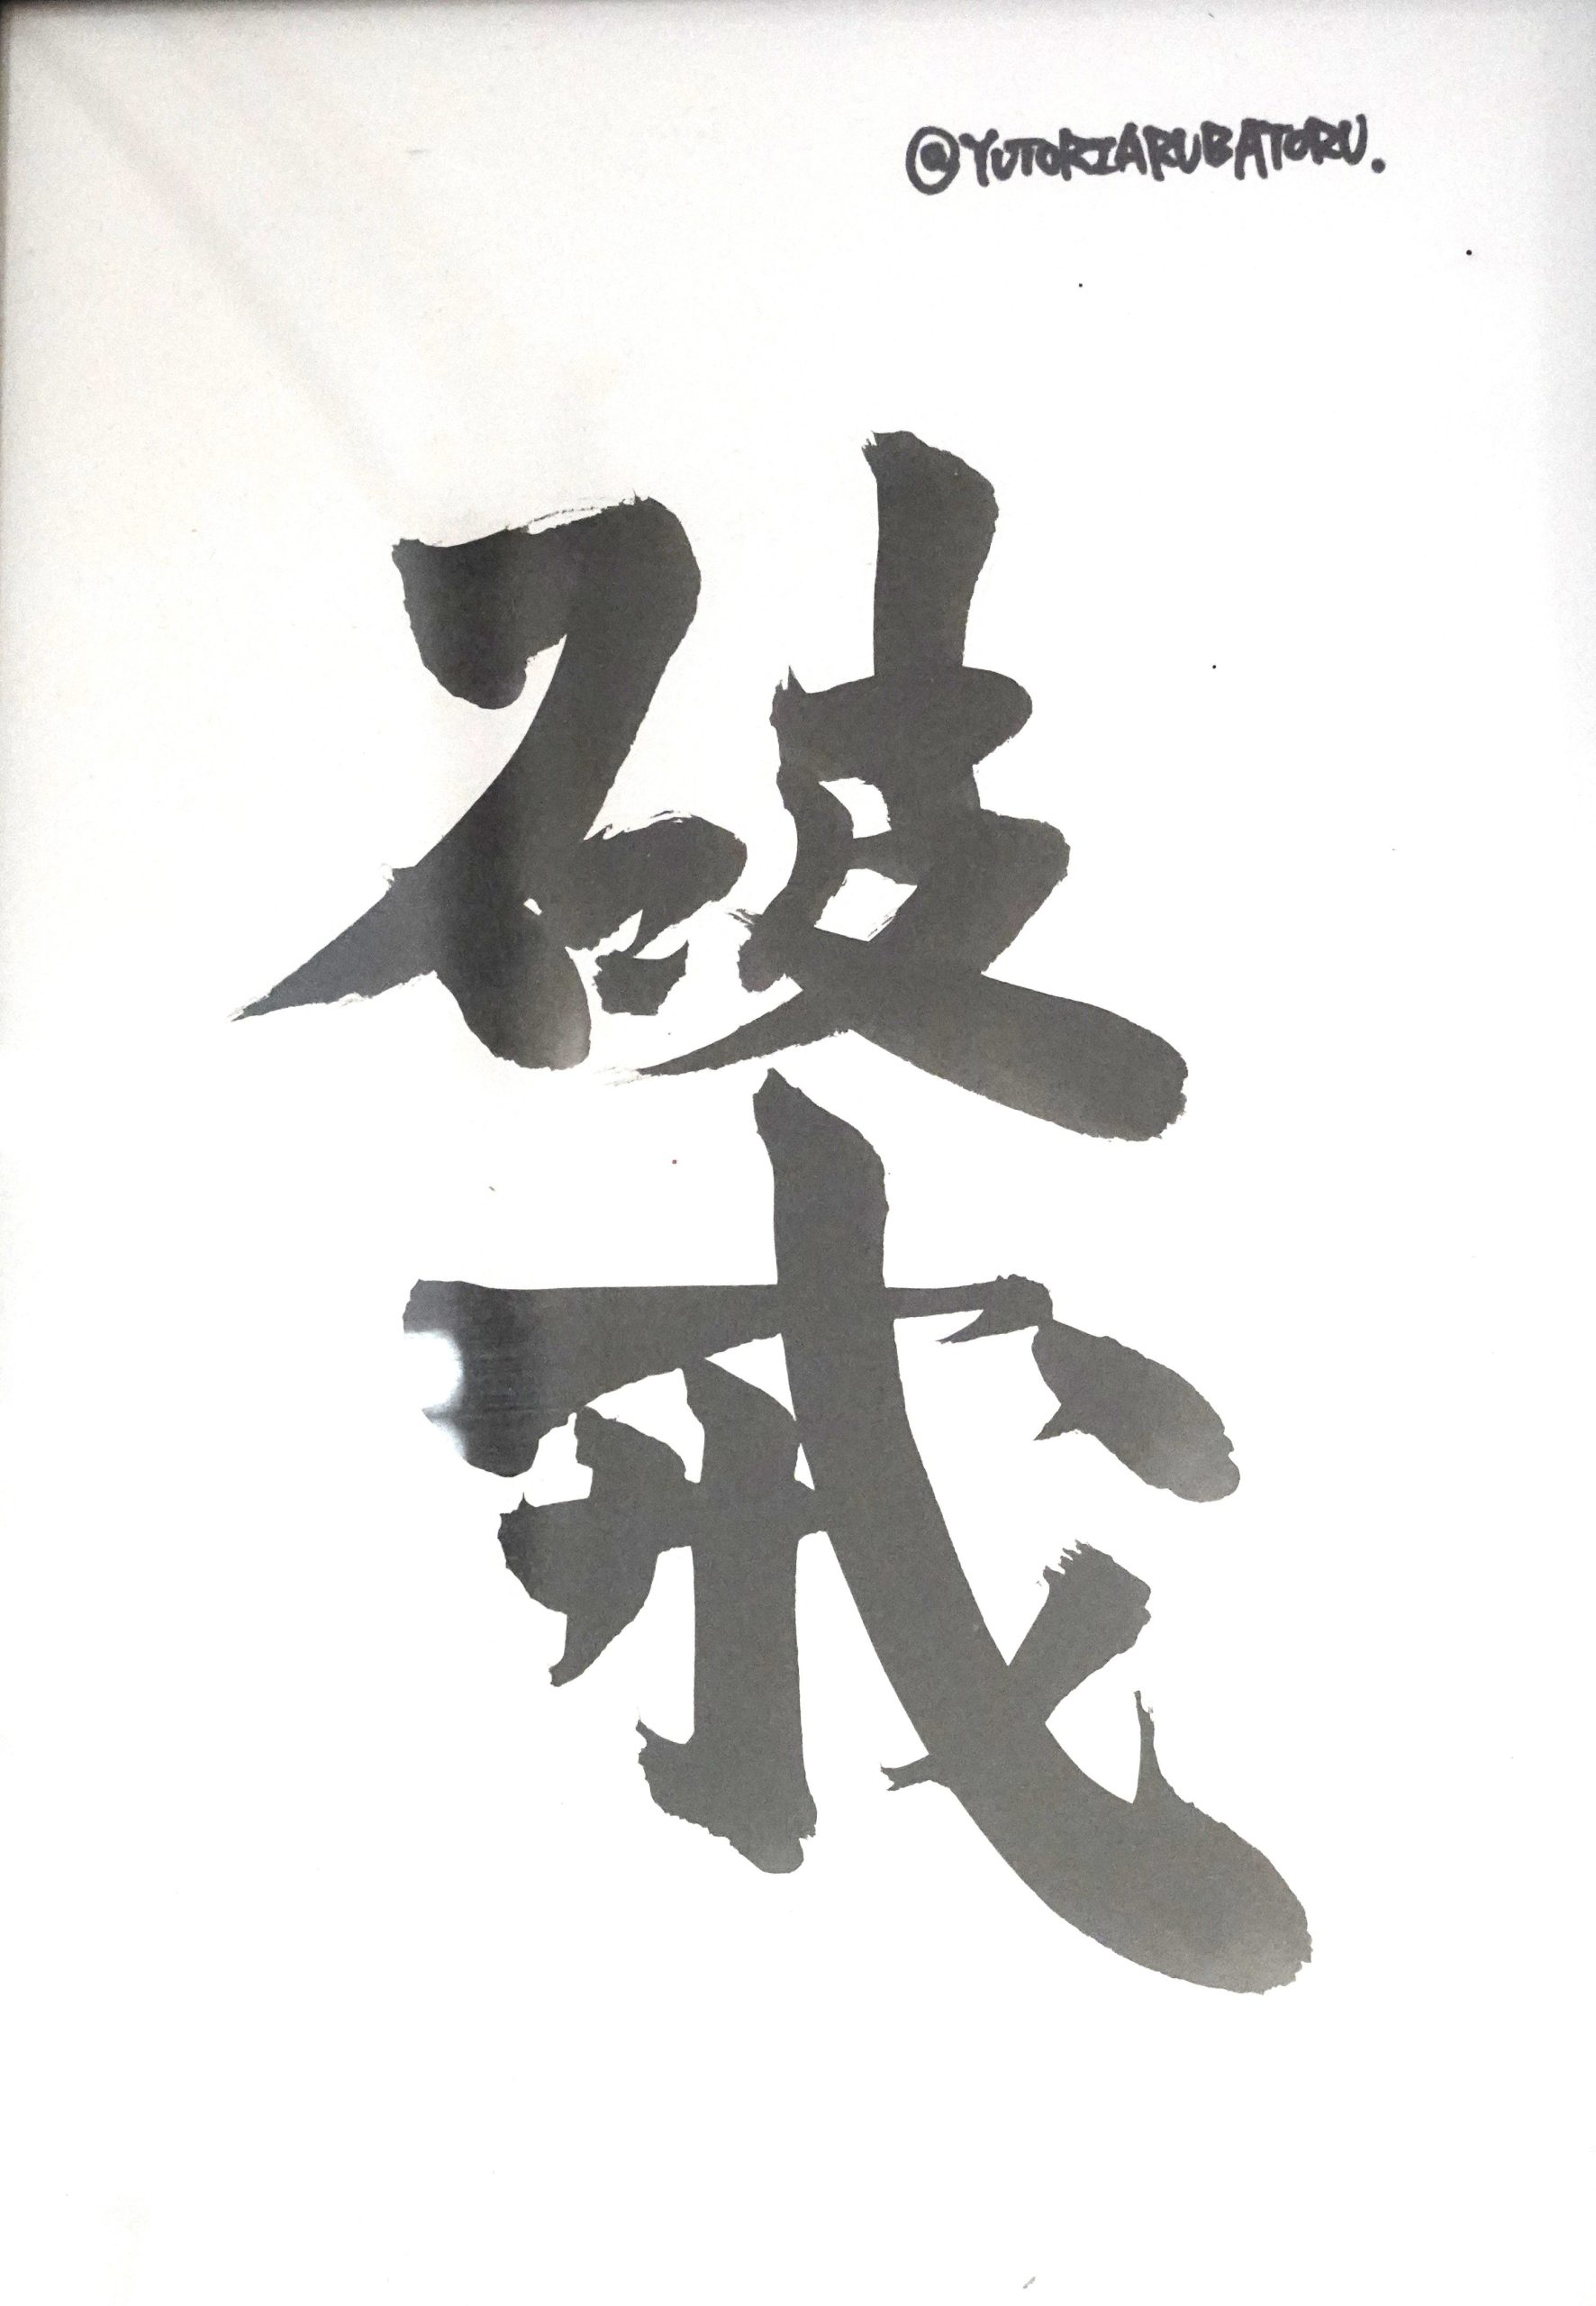 @YUTORIARUBATORU.
破戒